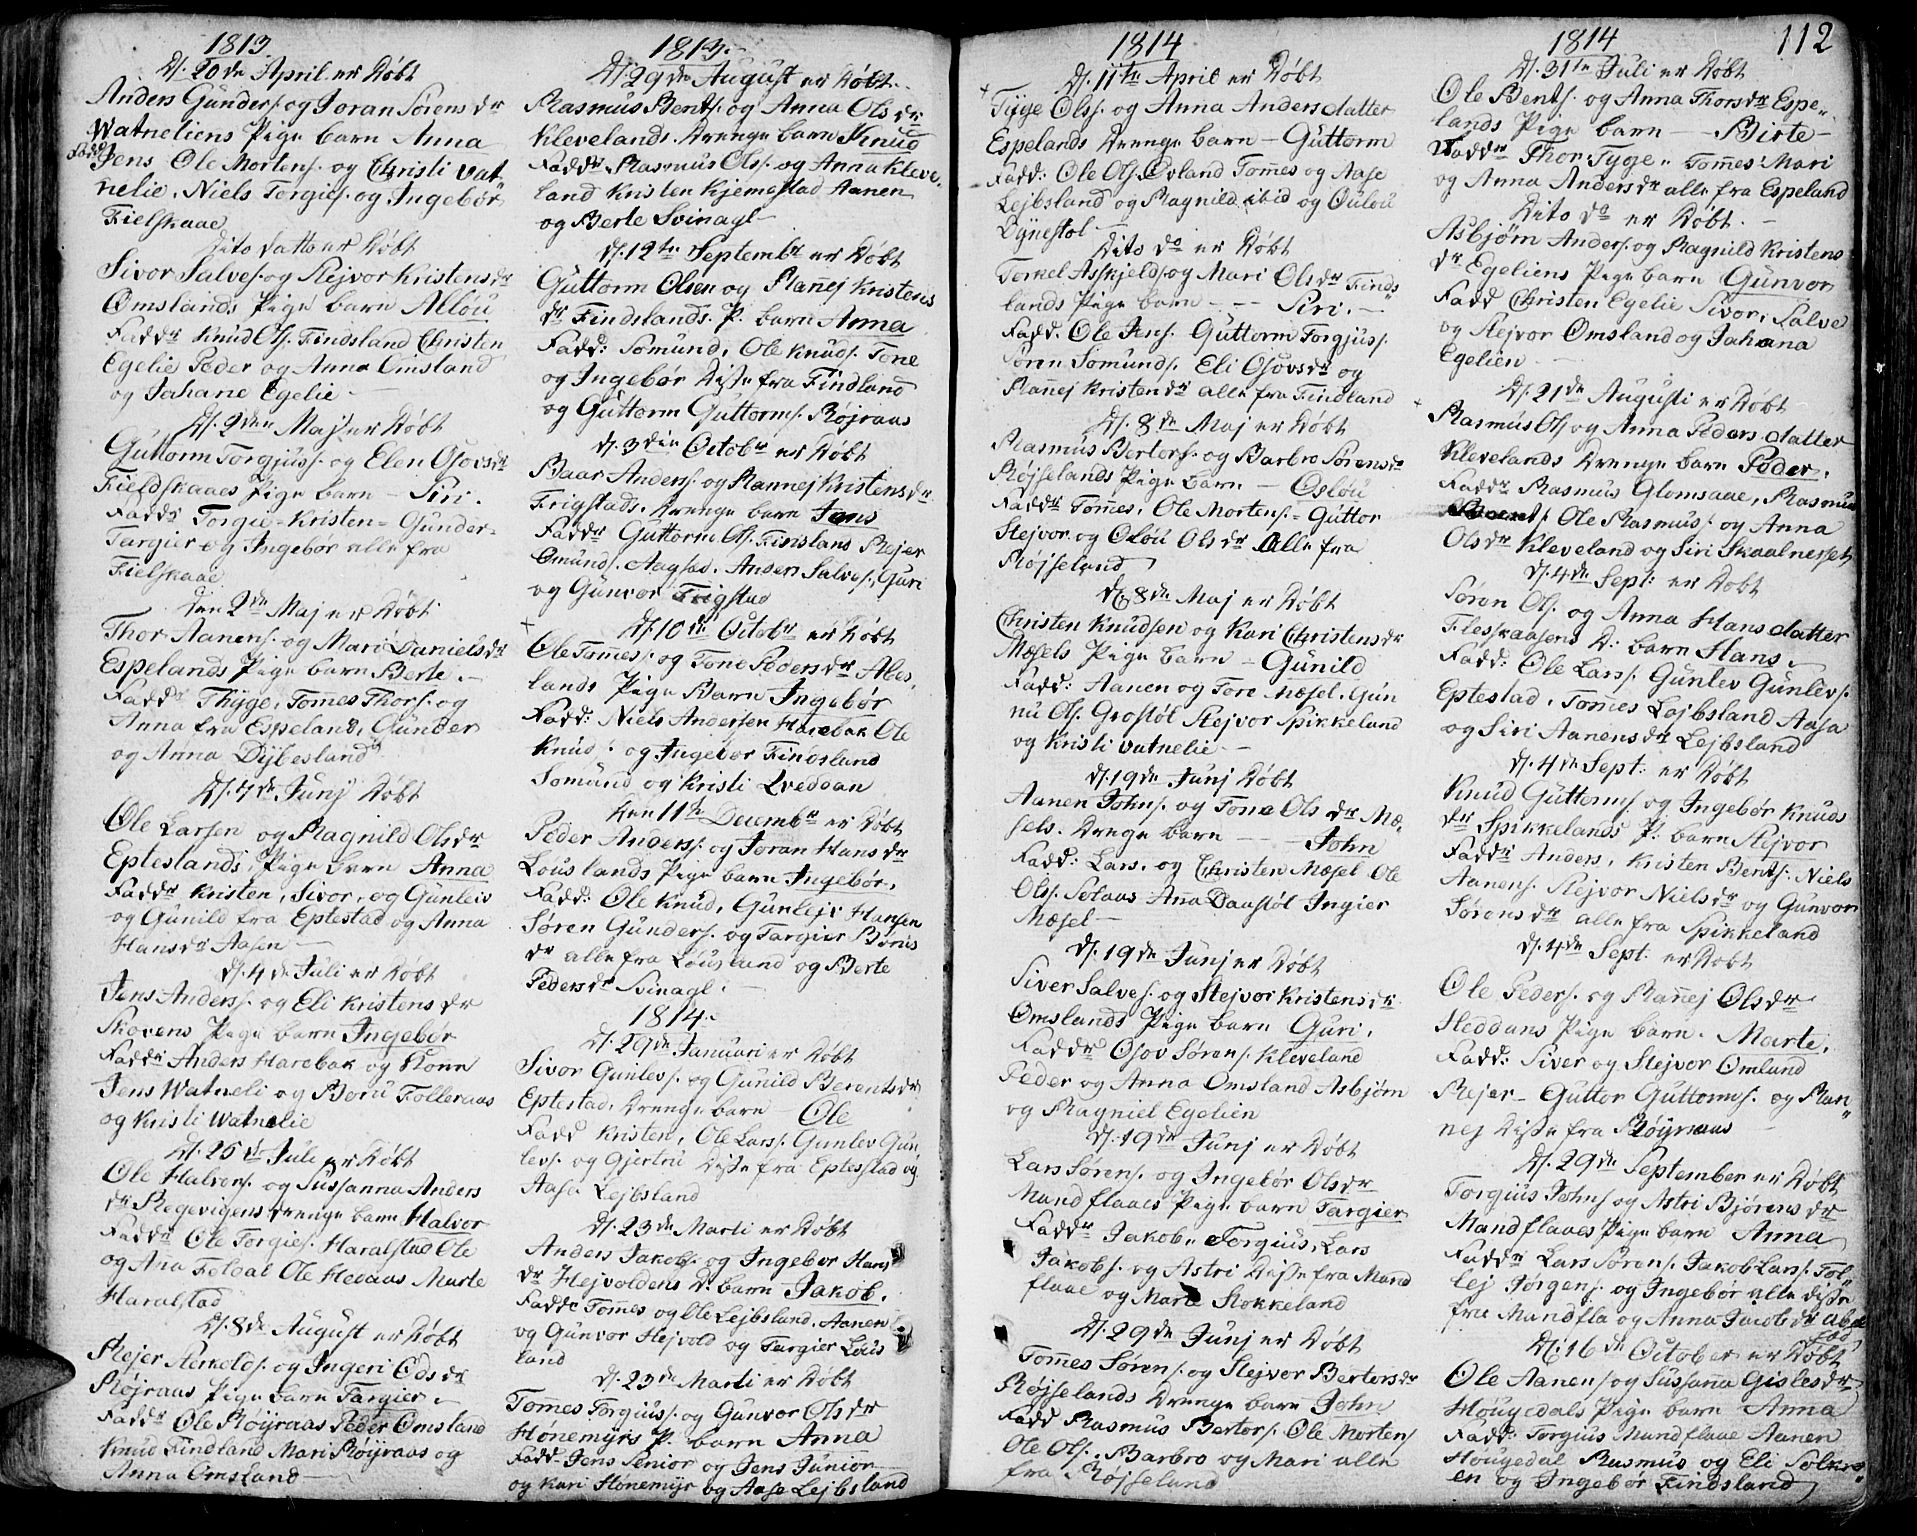 1813
D. 20de April er Døbt
Anders Gunders. og Joran Sørens dr
Watneliens Pige barn Anna
Fadd. Jens Ole Mortens. og Christi Vat-
nelie, Niels Torgies. og Ingebør
Fielskaae
Dito datto er Døbt
Sivor Salves. og Stejvor Kristens dr
Omslands Pige barn Allou
Faddr Knud Ols. Findsland Christen
Egelie Peder og Anna Omsland
og Jahane Egelie
D. 2den Maj er Døbt
Guttorm Torgjus. og Elen Osovs dr
Fieldskaaes Pige barn - Siri.
Faddr Torgie - Kristen - Gunder -
Targier og Ingebør alle fra
Fielskaae
Den 2de Maj er Døbt
Thor Aanens. og Mari Daniels dr
Espelands Pige barn Berte.
Faddr Thyge, Tomes Thors. og
Anna fra Espeland, Gunder
og Anna Dybesland
D. 7de Junj Døbt
Ole Larsen og Magnild Ols dr
Epteslands Pige barn Anna
Faddr Kristen, Sivor, og Gunlev
og Gunild fra Eptestad og Anna
Hans dr Aasen
D. 4de Juli er Døbt
Jens Anders. og Eli Kristens dr
Skovens Pige barn Ingebør
Faddr Anders Harebak og Kone
Jens Watneli og Boru Folleraas
og Kristi Watnelie
D. 25de Juli er Døbt
Ole Halvors. og Sussanna Anders
dr Regevigens drenge barn Halvor
Faddr Ole Torgies. Haralstad Ole
og Ana Foldal Ole Hedaas Marte
Haralstad
D. 8de August er Døbt
Rejer Askelds. og Ingeri Eds dr
Røjraas Pige barn Targier.
Faddr Ole Røyraas Peder Omsland
Knud Findland Mari Røyraas og
Anna Omsland
1813
D. 29de August er Døbt
Rasmus Bents. og Anna Ols dr
Klevelands Drenge barn Knud
Faddr Rasmus Ols. og Anna Kleve-
land Kristen Kjemestad Aanen
og Berte Svinagl
D. 12te Septembr er Døbt
Guttorm Olsen og Ranej Kristens
dr Findslands P. barn Anna
Fadd: Somund, Ole Knuds. Tone
og Ingebør disse fra Findland
og Guttorm Guttorms. Røjraas
D. 3die Octobr er Døbt
Baar Anders. og Rannej Kristens dr
Frigstads. Drenge barn Jens
Faddr Guttorm Ols. Finsland Rejer
Omunds. Aagstad. Anders Salves. Guri
og Gunvor Frigstad
D. 10de Octobr er Døbt
Ole Tomes. og Tone Peders dr Abes-
lands Pige Barn Ingebør
Fadd: Niels Andersen Harebak Ole
Knuds. og Ingebor Findsland
Somund og Kristi Qveddan
Den 11te Decembr er Døbt
Peder Anders. og Joran Hans dr
Louslands Pige barn Ingebør.
Fadd: Ole Knud, Gunlejv Hansen
Søren Gunders. og Targier Børus
dr alle fra Lousland og Berte
Peders dr Svinagl.
1814
D. 29de Januari er Døbt
Sivor Gunlevs. og Gunild Berents dr
Eptestad, Drenge barn - Ole
Fadd Kristen, Ole Lars. Gunlev Gun-
levs. og Gjertru Disse fra Eptestad og
Aase Lejbsland
D. 23de Marti er Døbt
Anders Jakobs. og Ingebor Hans
dr Hejvoldens D. barn Jakob.
Faddr Tomes og Ole Lejbsland. Aanen
og Gunvor Hejvold og Targier Lous
land
D. 23de Marti er Døbt
Tomes Torgius. og Gunvor Ols dr
Honemyrs P. barn Anna
Fadd. Jens Senior og Jens Junior
og Kari Honemyr og Aase Lejbsland
1814
D. 11te April er Døbt
Tyge Ols. og Anna Anders datter
Espelands Drenge barn - Guttorm
Fadd: Ole Ols. Øvland Tomes og Aase
Lejbsland og Magnild ibid og Oulou
Dynestøl
Dito do er Døbt
Torkel Askjelds. og Mari Ols dr Finds
lands Pige barn - - Siri.
Fadd. Ole Jens. Guttorm Torgjus.
Søren Somunds. Eli Osovs dr og
Ranej Kristen dr alle fra Findland
D. 8de Maj er Døbt
Rasmus Bertors. og Barbro Sørens dr
Røjselands Pige barn - Oslou
Faddr Tomes, Ole Mortens. - Guttor
Stejvor og Olou Ols dr Alle fra
Røjseland
D. 8de Maj er Døbt
Christen Knudsen og Kari Christens dr
Mæsels Pige barn - Gunild
Fadd: Aanen og Tore Mæsel. Gun
nu Ols. Grostøl Stejvor Spikkeland
og Kristi Vatnelie
D. 19de Junj Døbt
Aanen Johns. og Tone Ols dr Mæ-
sels. Drenge barn - - John
Fadd: Lars, og Christen Mæsel Ole
Ols. Solaas Ana Daastøl Ingier
Mæsel
D. 19de Junj er Døbt
Siver Salves. og Stejvor Kristens dr
Omslands Pige barn Guri.
Faddr Osov Sørens. Kleveland
Peder og Anna Omsland Asbjørn
og Magniel Egelien
D. 19de Junj er Døbt
Lars Sørens. og Ingebør Ols dr
Mandflaaes Pige barn Targier
Faddr Jakob, Torgius, Lars
Jakobs. og Astri Disse fra Mand
flaae og Marte Stokkeland
D. 29de Junj er Døbt
Tomes Sørens. og Stejvor Bertors dr
Røjselands Drenge barn John
Fadd Rasmus Bertors. Ole Mortens
Ole Ols. Barbro og Mari alle
fra Røjseland
1814
112
D. 31te Juli er Døbt
Ole Bents. og Anna Thors dr Espe-
lands Pige barn - Birte -
Faddr Thor, Tyge, Tomes Mari
og Anna Anders dr alle fra Espeland
Dito do er Døbt
Asbjørn Anders. og Magnild Kristens
dr Egeliens Pige barn Gunvor
Fadd Christen Egelie Sivor, Salve
og Stejvor Omsland og Jahana
Egelien
D. 21de Augusti er Døbt
Rasmus Ols og Anna Peders datter
Klevelands Drenge barn Peder.
Faddr Rasmus Glomsaae, Rasmus
Bernts. Ole Rasmus. og Anna
Ols dr Kleveland og Siri Skaalnesset
D. 4de Sept: er Døbt
Søren Ols. og Anna Hans datter
Fleskaasens D. barn Hans.
Fadd: Ole Lars. Gunlev Gunlevs.
Eptestad, Tomes Lejbsland Aase
og Siri Aanens dr Lejbsland
D. 4de Sept: er Døbt
Knud Guttorms. og Ingebør Knuds
dr Spikkelands P. barn Stejvor
Faddr Anders, Kristen Bents. Niels
Aanens. Stejvor Niels dr og Gunvor
Sørens dr alle fra Spikkeland
D. 4de Sept. er Døbt
Ole Peders. og Ranej Ols dr
Heddans Pige barn. Marte.
Fadd: Siver og Stejvor Omland
Rejer - Guttor Guttorms. og Ran-
nej Disse fra Røyraas
D. 29de September er Døbt
Torgius Johns. og Astri Bjørens dr
Mandflaaes Pige barn Anna
Faddr Lars Sørens. Jakob Lars. Tol-
lej Jørgens. og Ingebør alle disse
fra Mandfla og Anna Jacobs dr
D. 16de October er Døbt
Ole Aanens. og Sussana Gisles dr
Hougedals Pige barn Anna
Fadd: Torgius Mandflaae Aanen
Hougedal Rasmus og Eli Solkro-
en og Ingebør Findsland